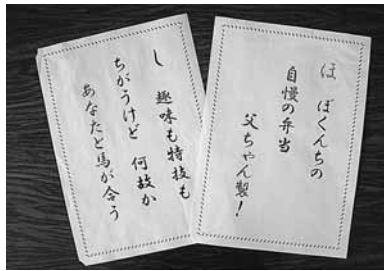 ほ ぼくんちの
自慢の弁当
父ちゃん製!
し 趣味も特技も
ちがうけど 何故か
あなたと馬が合う